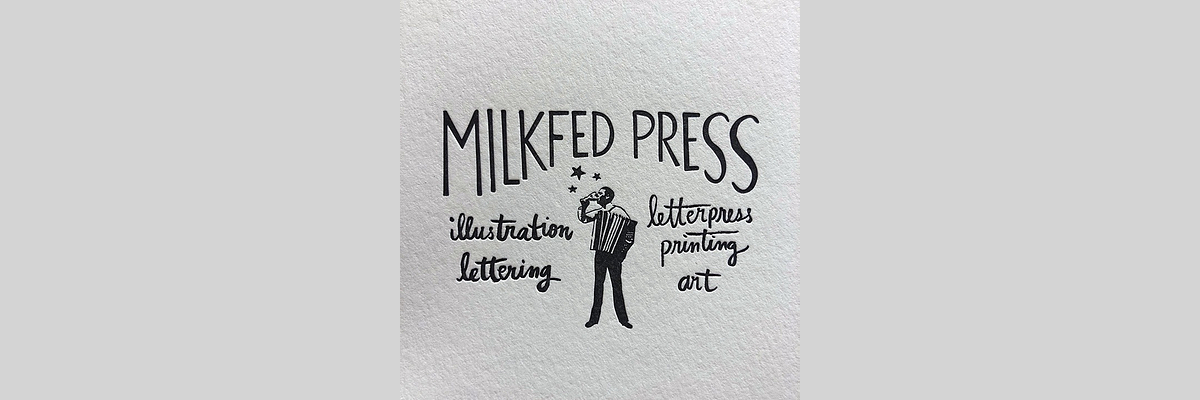 MILKFED PRESS
illustration
lettering
letterpress
printing
art